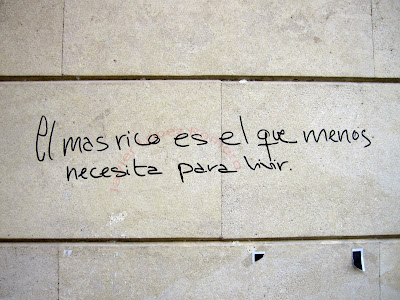 El mas rico es el que menos
necesita para vivir.